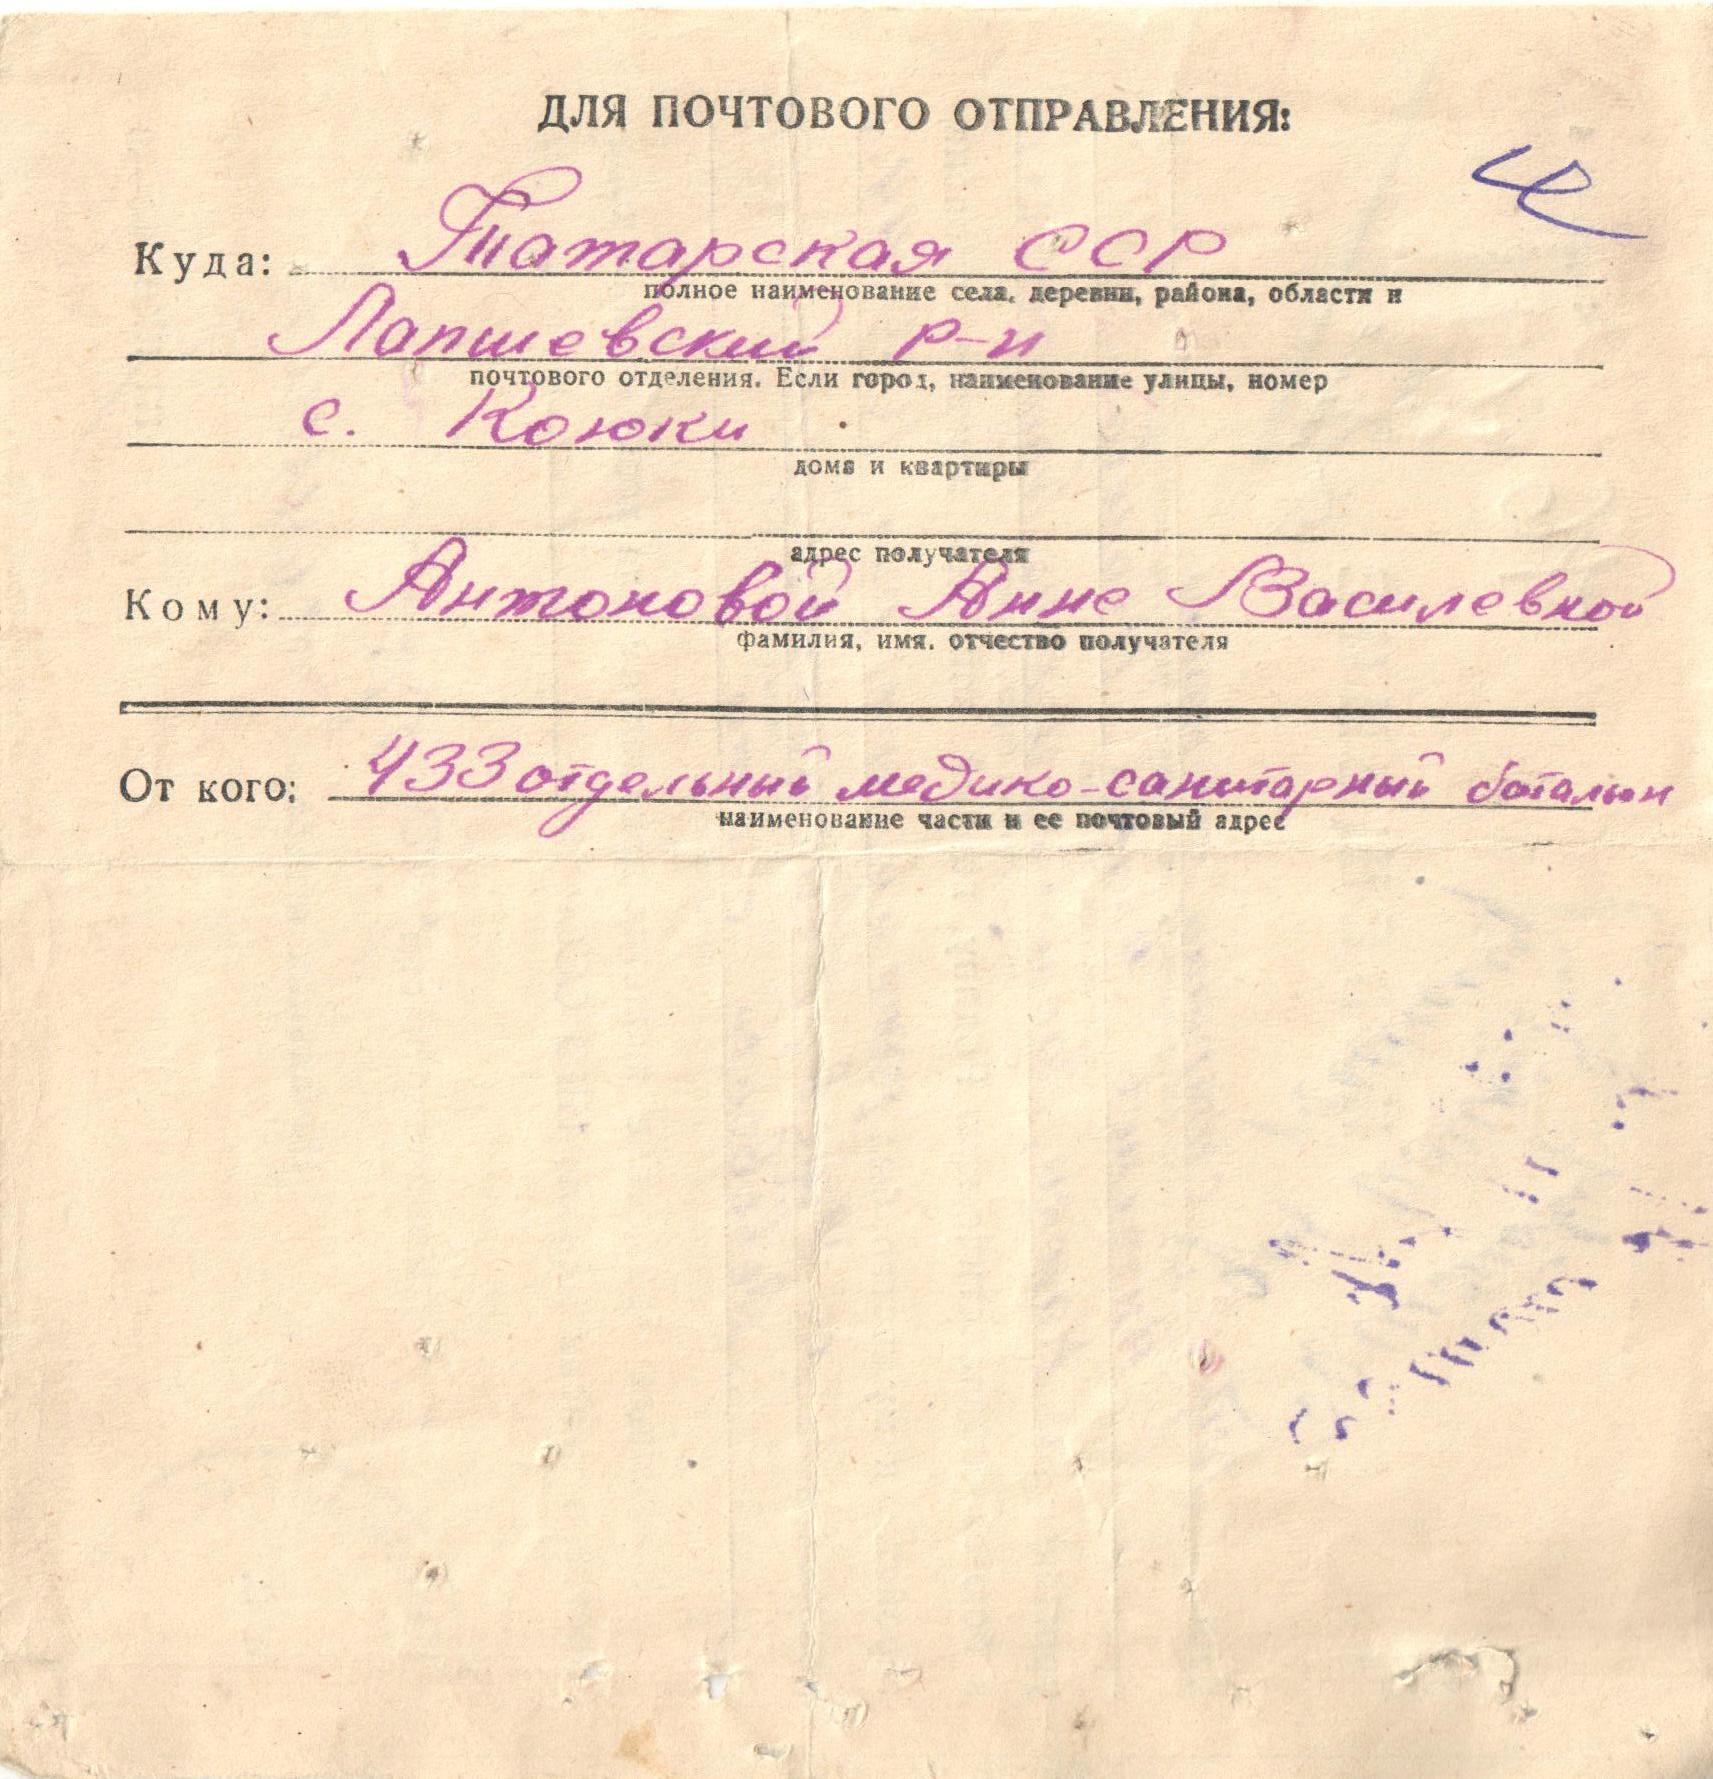 ДЛЯ ПОЧТОВОГО ОТПРАВЛЕНИЯ:
Куда: Татарская ССР
полное наименование села, деревни, района, области и
Лапшевский р-н
почтового отделения. Если город, наименование улицы, номер
с. Коюки
дома и квартиры
адрес получателя
Кому: Антоновой Анне Василевной
фамилия, имя, отчество получателя
От кого: 433 отдельный медико-санитарный батальон
наименование части и ее почтовый адрес